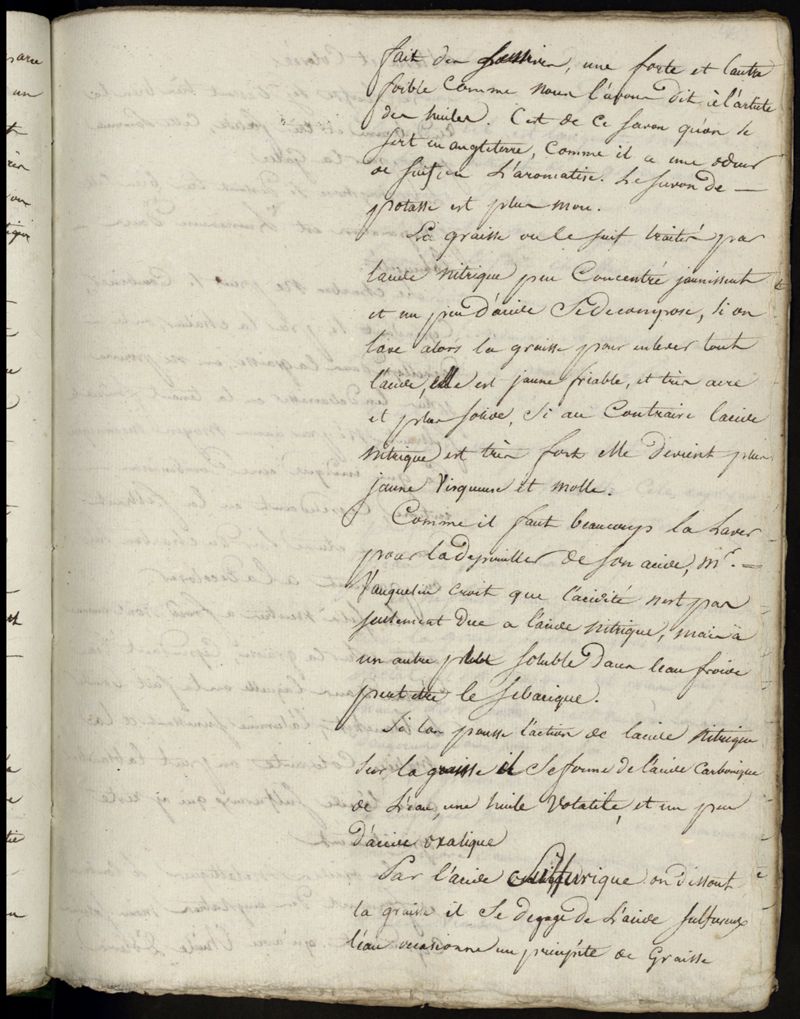 fait des lessives, une forte et l'autre
foible comme nous l'avons dit à l'article
des huiles. C'est de ce savon qu'on se
sert en angleterre, comme il a une odeur
de suif on L'aromatise. Le savon de —
potasse est plus mou.
La graisse ou le suif traités par
lacide nitrique peu Concentré jaunissent
et un peu d'acide se decompose, si on
lave alors la graisse pour enlever tout
l'acide, elle est jaune friable, et très acre
et plus solide, si au Contraire lacide
nitrique est très fort elle devient plus
jaune visqueuse et molle.
Comme il faut beaucoup la Laver
pour la depouiller de son acide, Mr. =
Vauquelin croit que l'acidité n'est pas
seulement due a lacide nitrique, mais à
un autre plus soluble dans leau froide
peut etre le sebacique.
Si lon pousse l'action de lacide nitrique
sur la graisse il se forme de l'acide Carbonique
de L'eau, une huile volatile, et un peu
d'acide oxalique
Par l'acide Sulfurique on dissout
la graisse il se degage de L'acide sulfureux
l'eau occasionne un précipité de Graisse